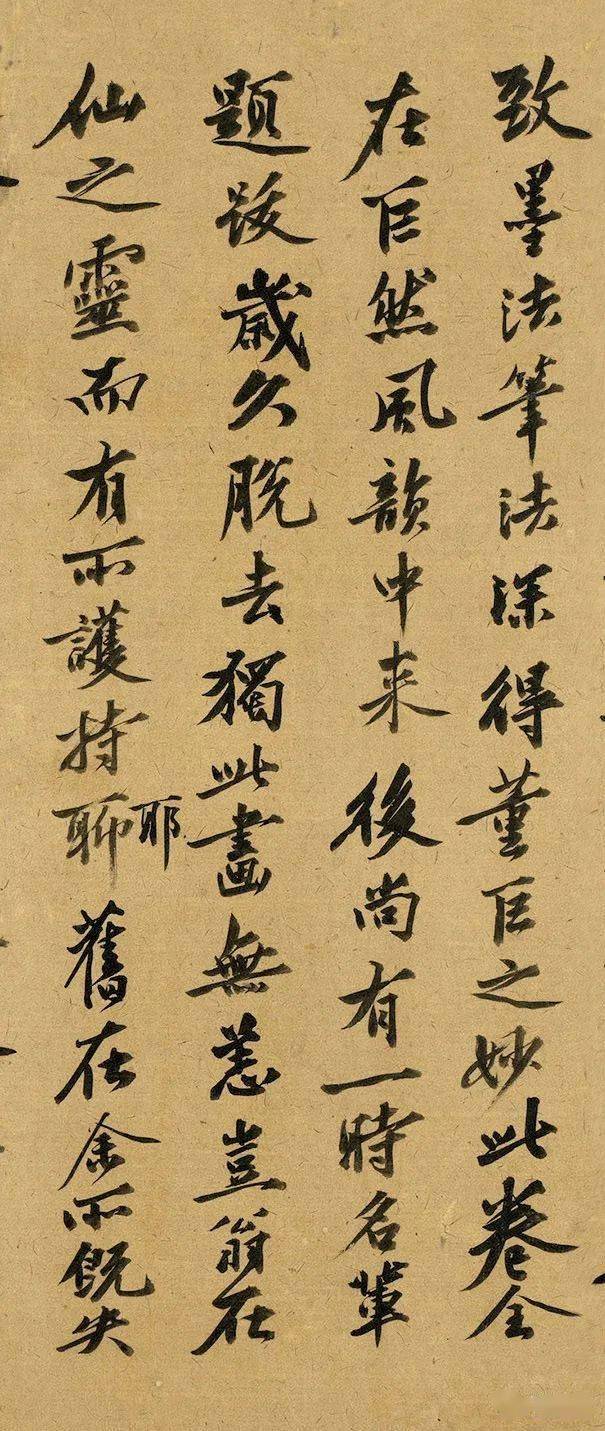 致墨法筆法深得董巨之妙此卷全
在巨然風韻中来後尚有一時名輩
題跋歲久脫去獨此畫無恙豈翁在
仙之靈而有所護持聊耶舊在余所既失